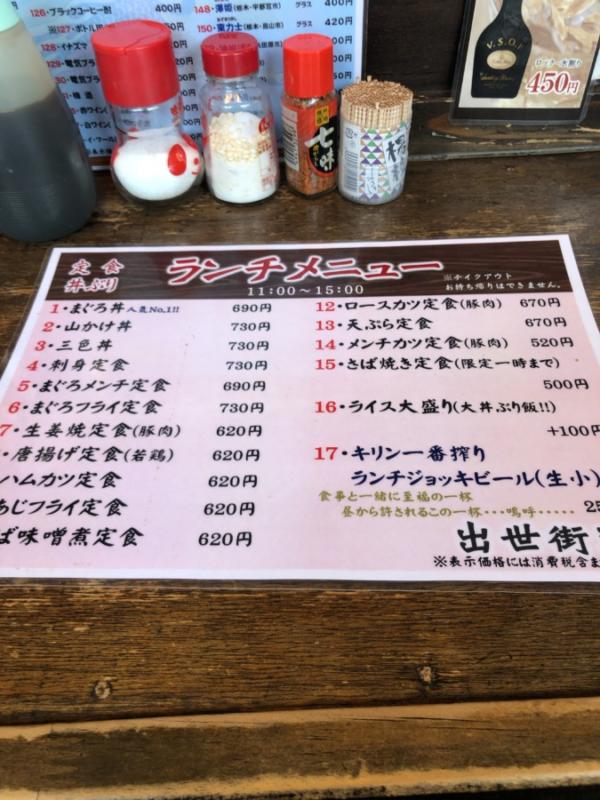 126・ブラックコーヒー酎 400円
128・イナズマ
129・電気ブラ
148・澤姫(栃木・宇都宮市) グラス 400円
150・東力士(栃木・烏山市) グラス 420円
V.S.O.P
ロック・水割り
450円
七味
定食
丼ぶり
ランチメニュー
11:00〜15:00
※テイクアウト
お持ち帰りはできません。
1・まぐろ丼 人気No.1!! 690円
2・山かけ丼 730円
3・三色丼 730円
4・刺身定食 730円
5・まぐろメンチ定食 690円
6・まぐろフライ定食 730円
7・生姜焼定食(豚肉) 620円
・唐揚げ定食(若鶏) 620円
ハムカツ定食 620円
あじフライ定食 620円
ば味噌煮定食 620円
12・ロースカツ定食(豚肉) 670円
13・天ぷら定食 670円
14・メンチカツ定食(豚肉) 520円
15・さば焼き定食(限定一時まで)
500円
16・ライス大盛り(大丼ぶり飯!!)
+100円
17・キリン一番搾り
ランチジョッキビール(生・小)
食事と一緒に至福の一杯
昼から許されるこの一杯・・・嗚呼・・・・・ 25
出世街
※表示価格には消費税含ま